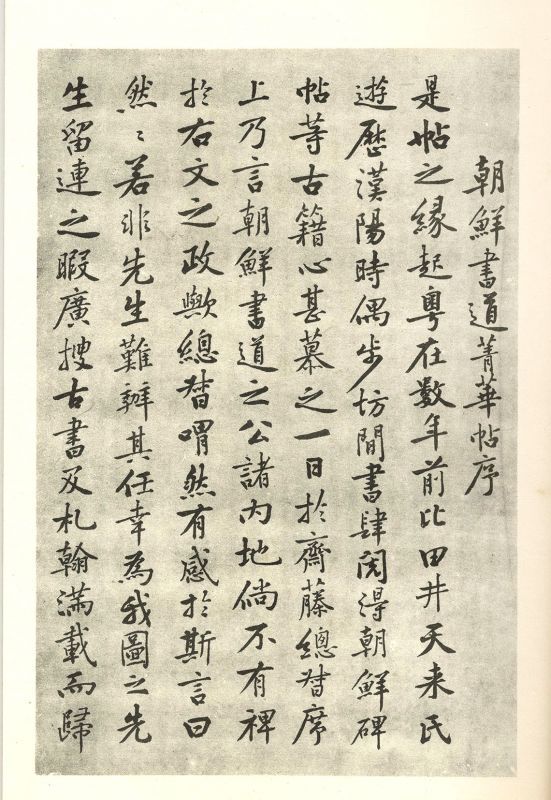 朝鮮書道菁華帖序
是帖之緣起粤在数年前比田井天来氏
遊歷漢陽時偶步坊間書肆閱得朝鮮碑
帖等古籍心甚慕之一日於齋藤總督席
上乃言朝鮮書道之公諸内地倘不有裨
於右文之政歟總督喟然有感於斯言曰
然〻若非先生難辦其任幸為我圖之先
生留連之暇廣搜古書及札翰滿載而歸